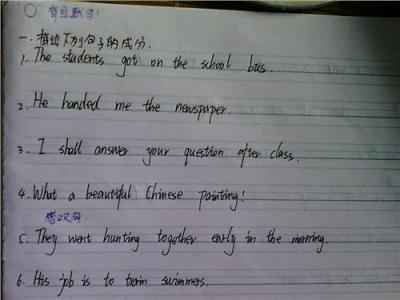 一. 指出下列句子的成分.
1. The students got on the school bus.
2. He handed me the newspaper.
3. I shall answer your question after class.
4. What a beautiful Chinese painting!
感叹句.
5. They went hunting together early in the morning.
6. His job is to train swimmers.